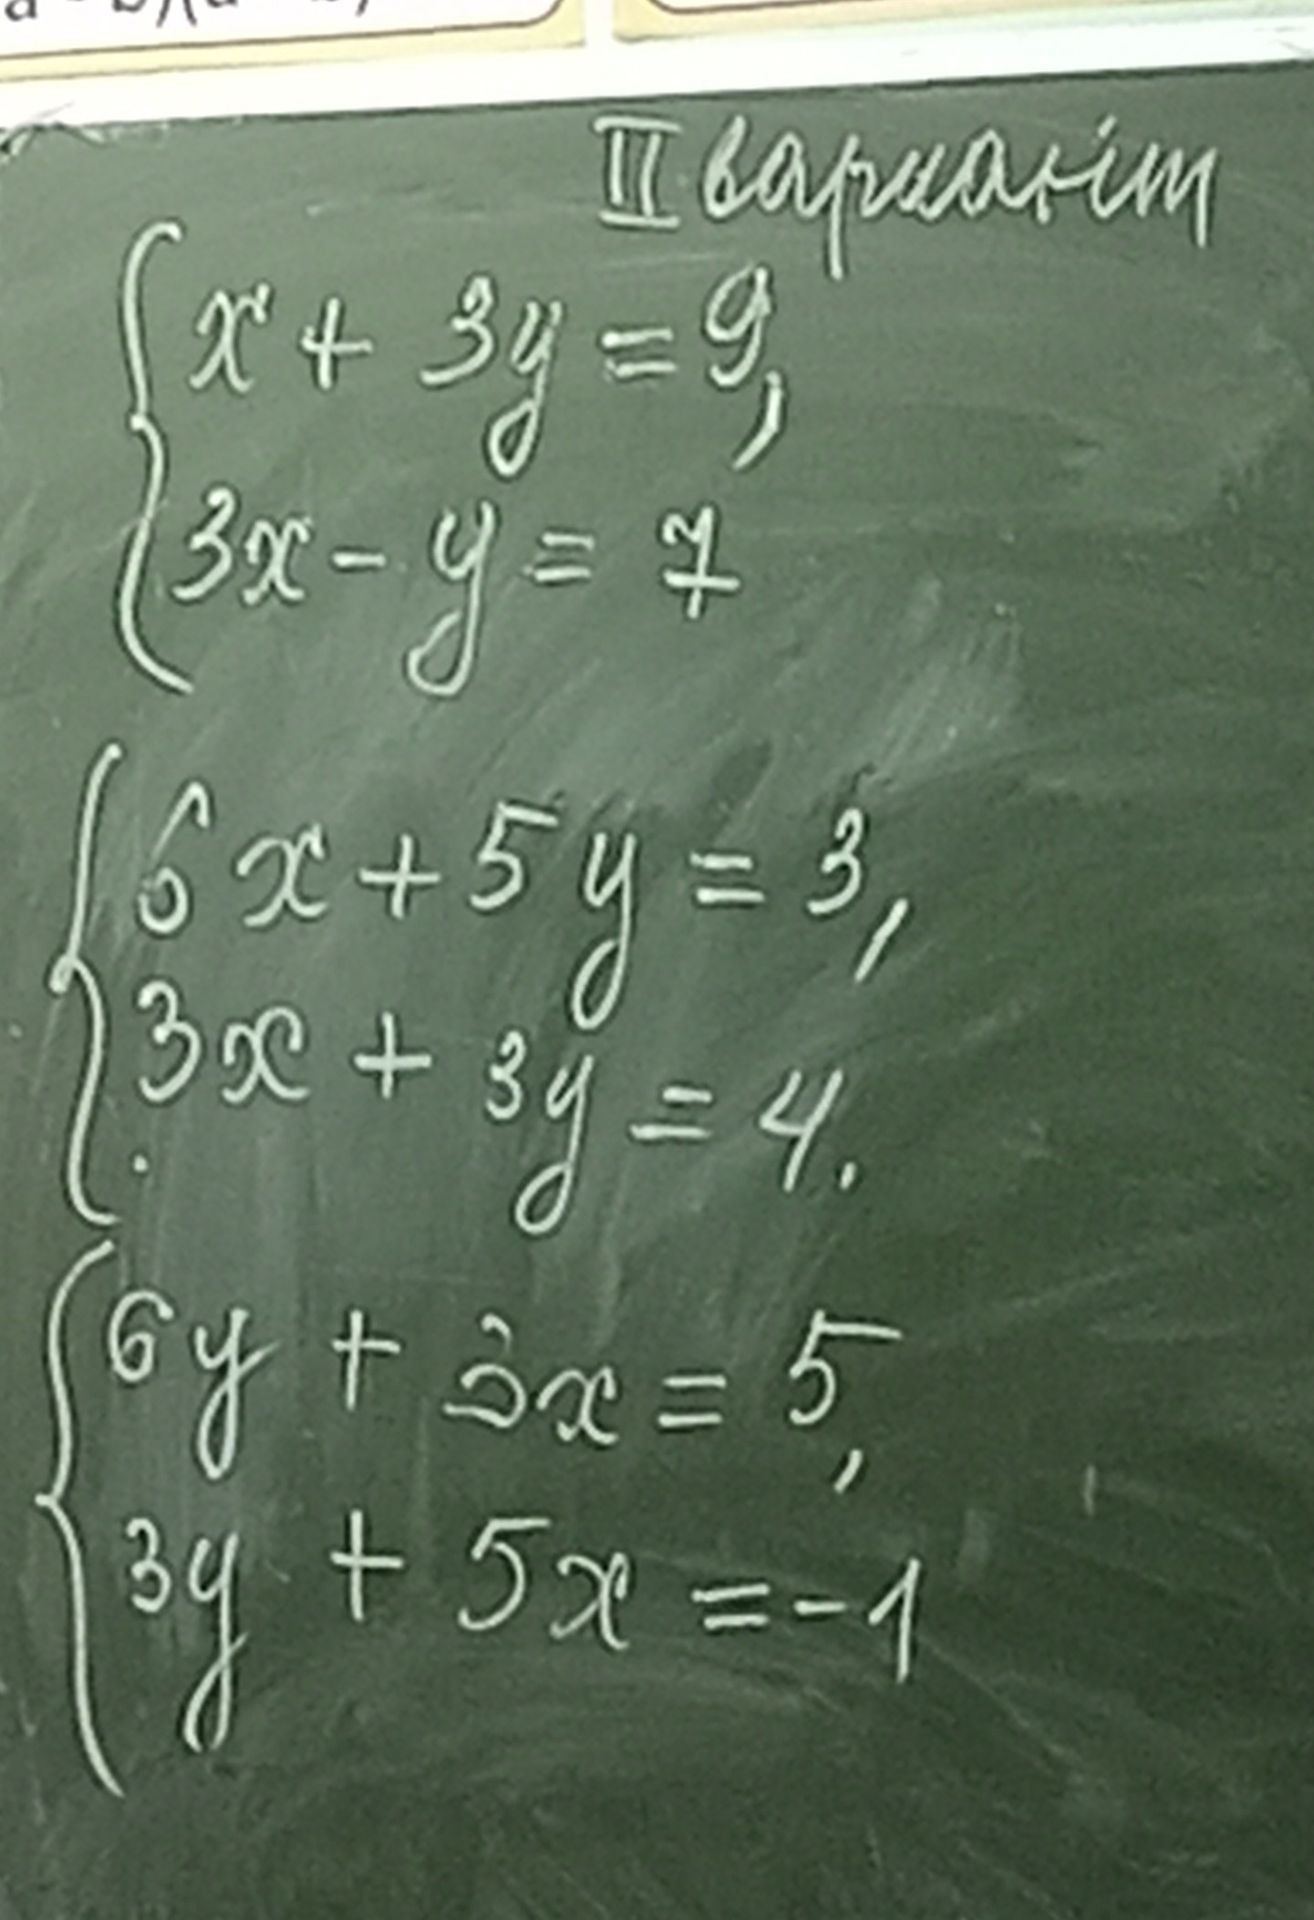 II варіант
x + 3y = 9,
3x - y = 7
6x + 5y = 3,
3x + 3y = 4.
6y + 3x = 5,
3y + 5x = -1